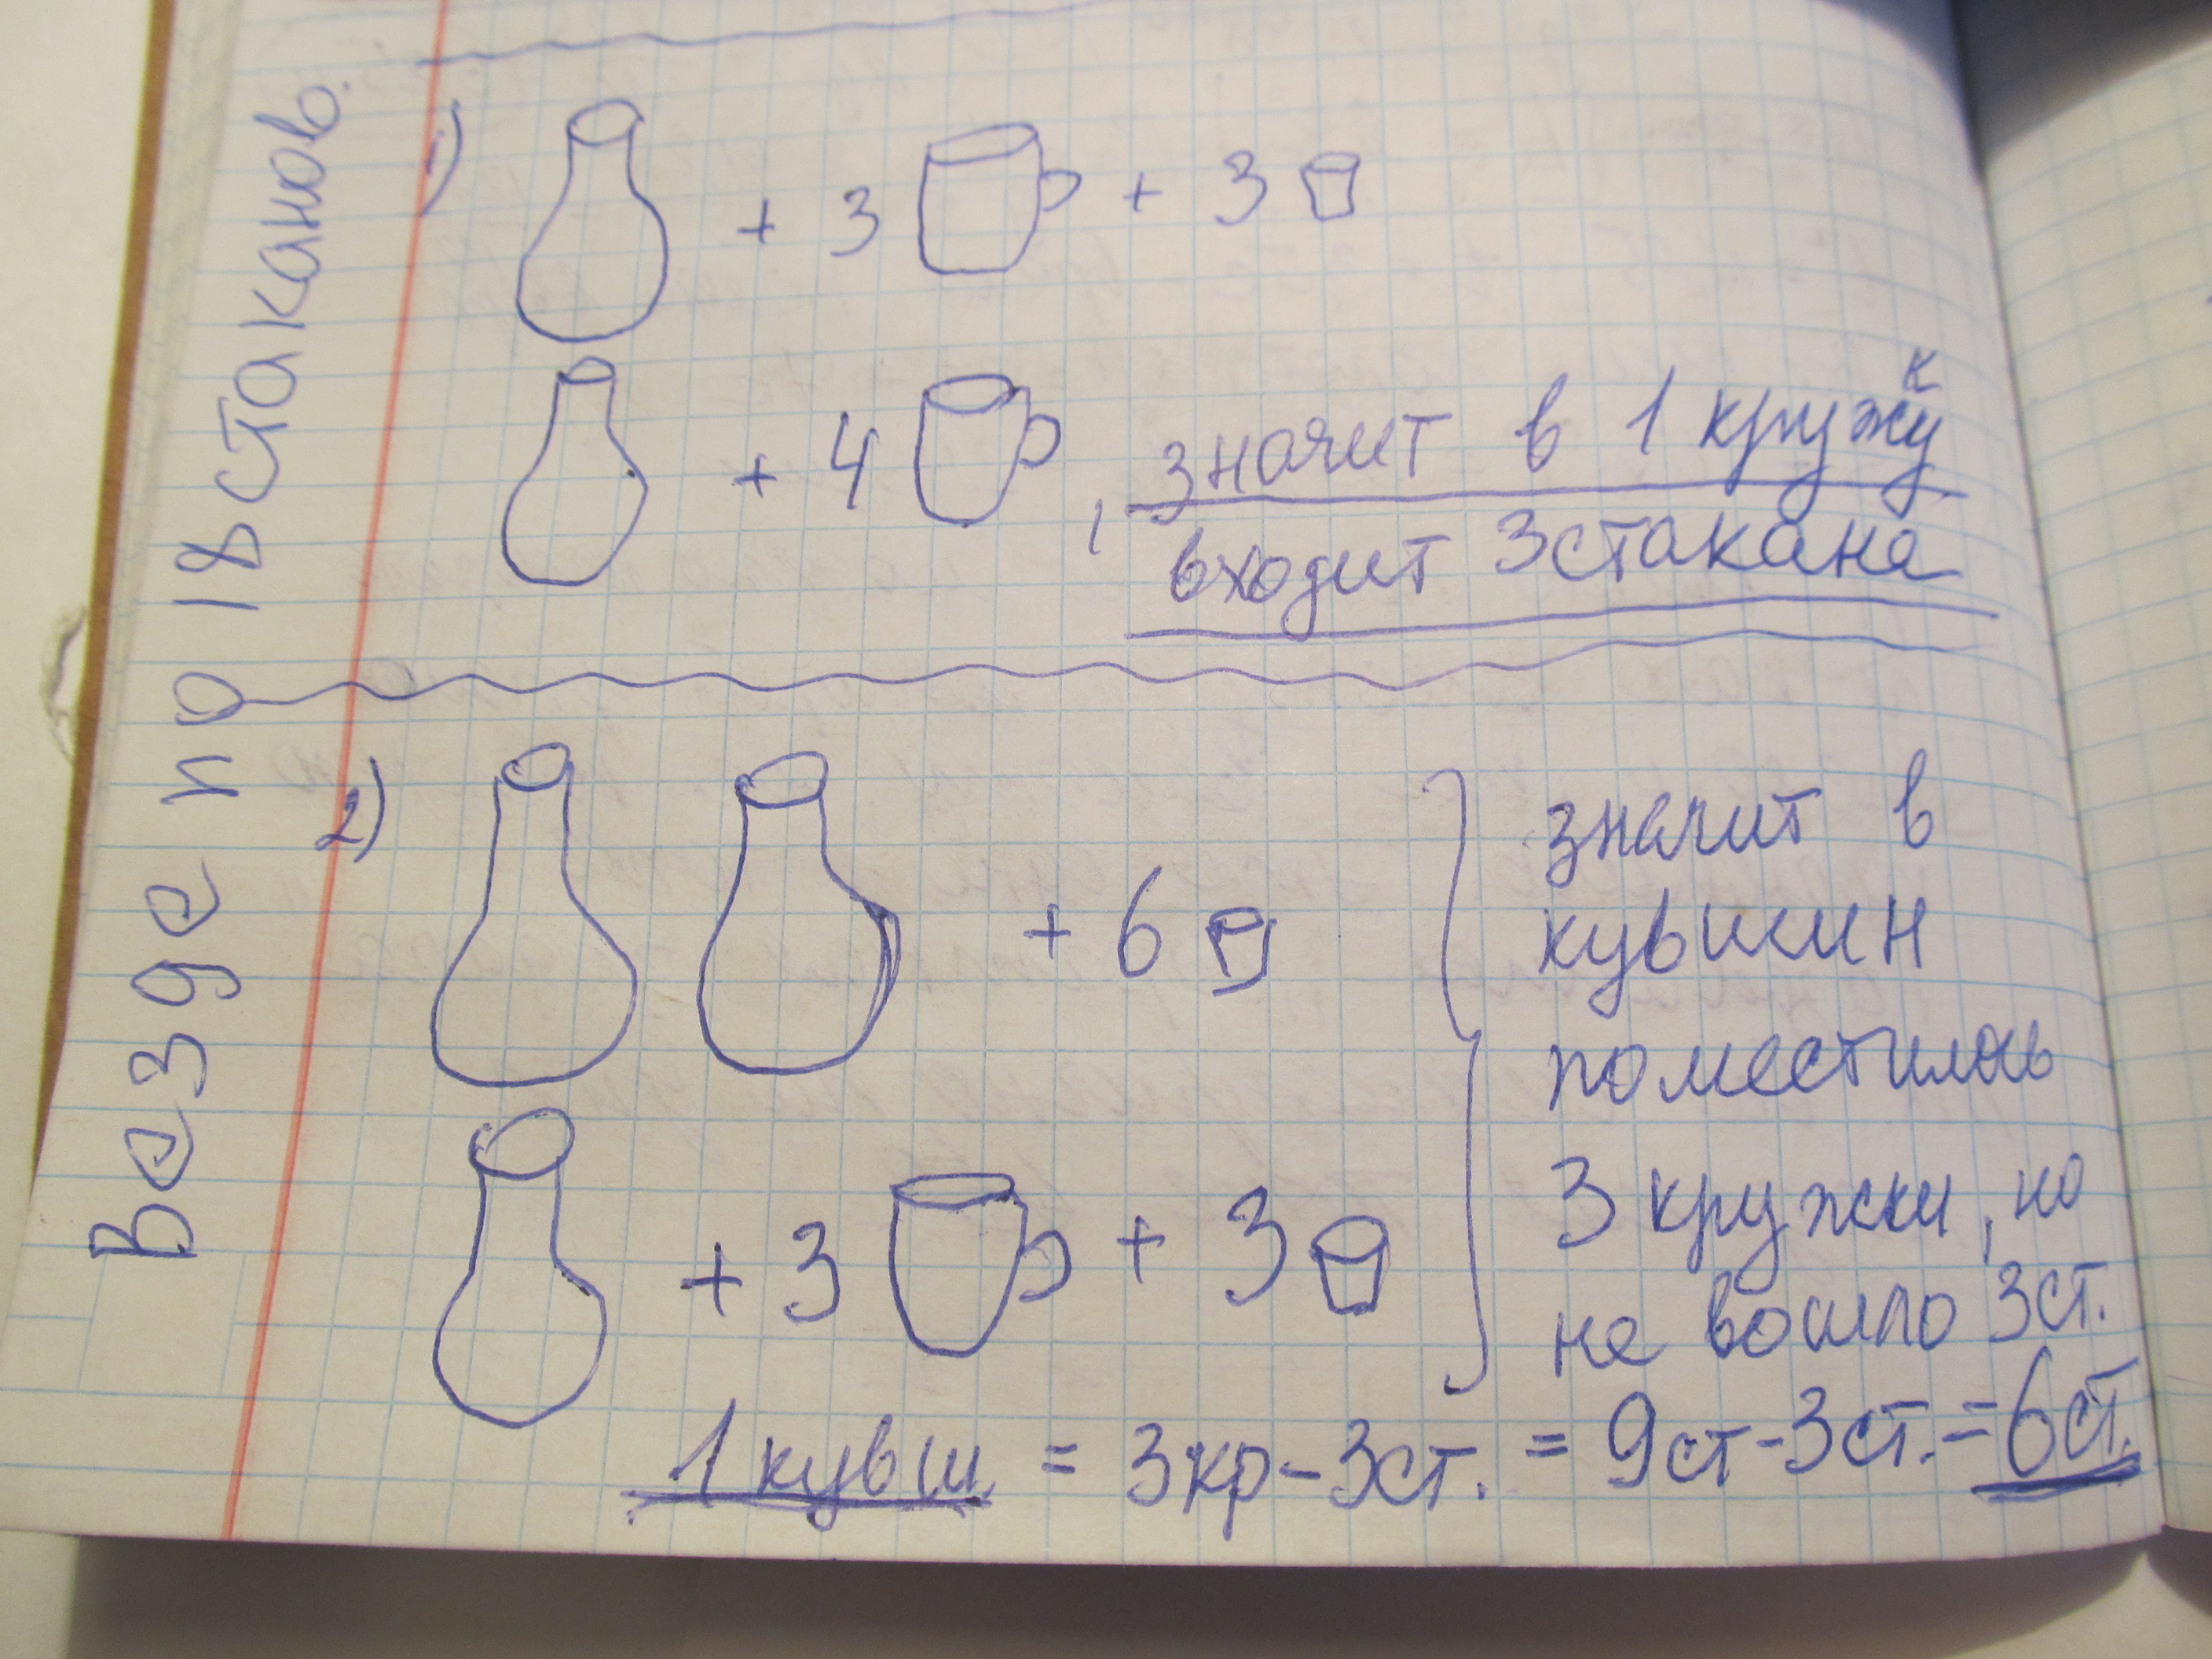 Везде по 18 стаканов.
1) + 3 + 3
+ 4 , значит в 1 кружку
входит 3 стакана
2) + 6
+ 3 + 3
значит в
кувшин
поместилось
3 кружки, но
не вошло 3 ст.
1 кувш = 3 кр - 3 ст. = 9 ст - 3 ст. = 6 ст.